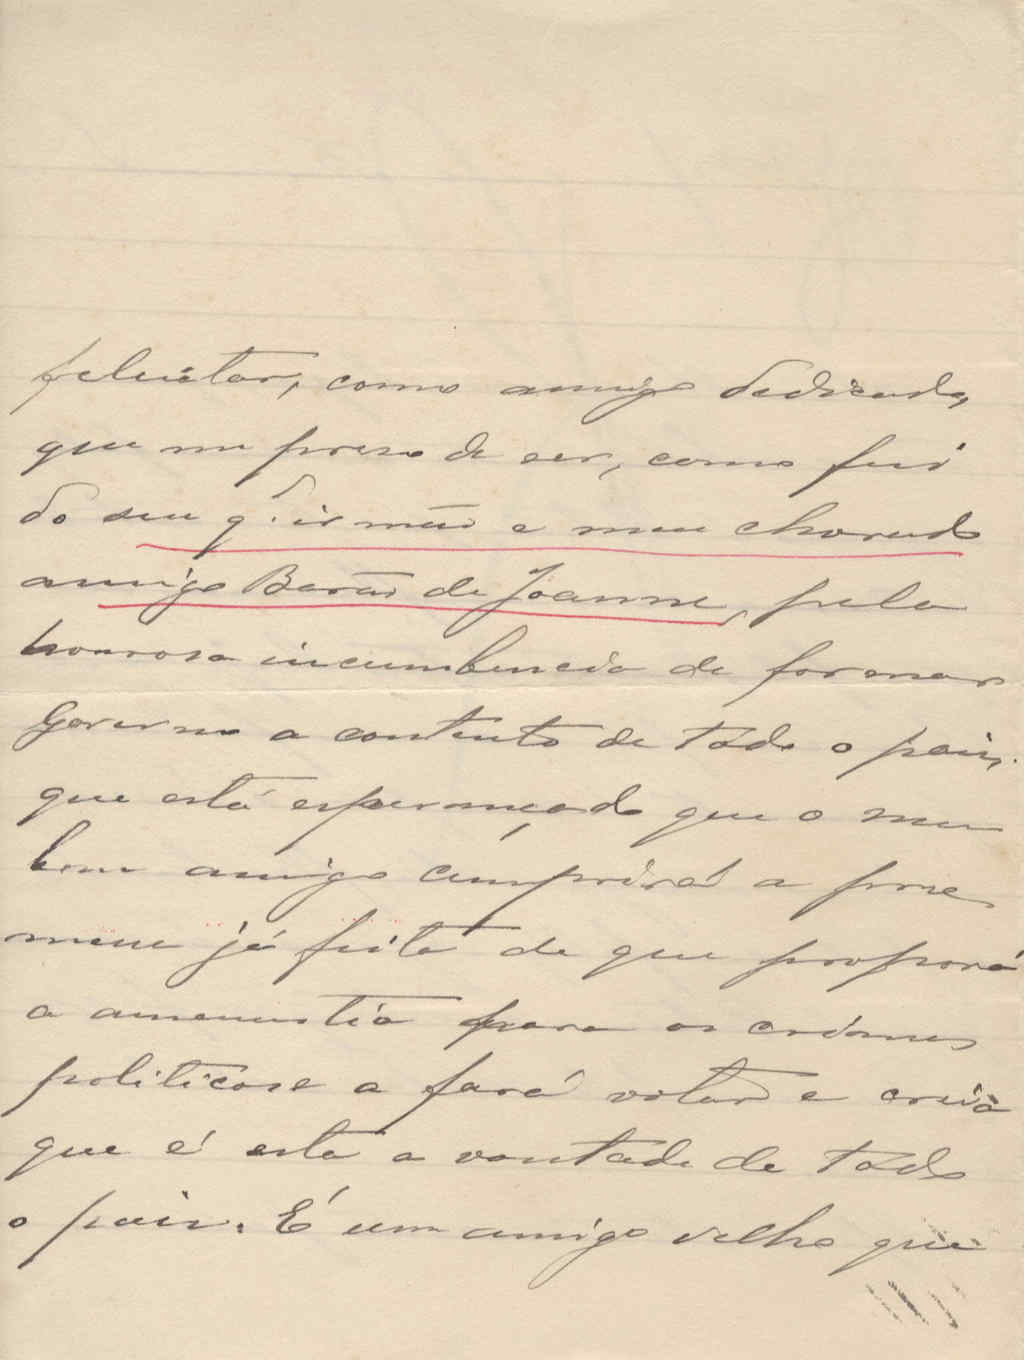 felicitar, como amigo dedicado,
que me preso de ser, como fui
do seu q. irmão e meu chorado
amigo Barão de Joanne, pela
honrosa incumbencia de formar
Governo a contento de todo o paiz,
que está esperançado que o meu
bom amigo cumprirá a
já feita de que proporá
a amenistia para os crimes
politicos e a fará votar e creia
que é esta a vontade de todo
o paiz. É um amigo velho que